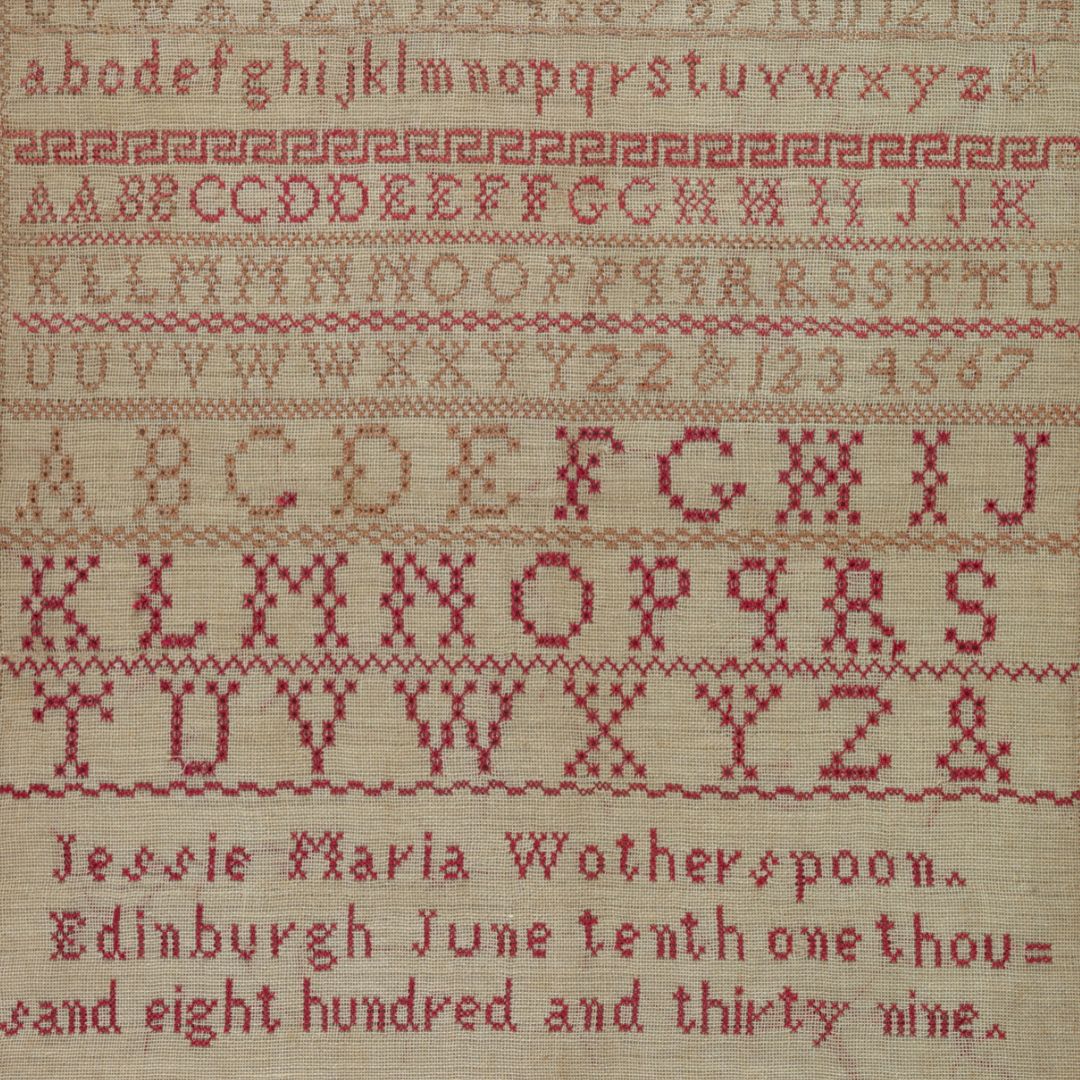 U V W X Y Z & 1 2 3 4 5 6 7 8 9 10 11 12 13 14
a b c d e f g h i j k l m n o p q r s t u v w x y z &
A A B B C C D D E E F F G G H H I I J J K
K L L M M N N O O P P Q Q R R S S T T U
U U V V W W X X Y Y Z Z & 1 2 3 4 5 6 7
A B C D E F G H I J
K L M N O P Q R S
T U V W X Y Z &
Jessie Maria Wotherspoon.
Edinburgh June tenth one thou=
sand eight hundred and thirty nine.